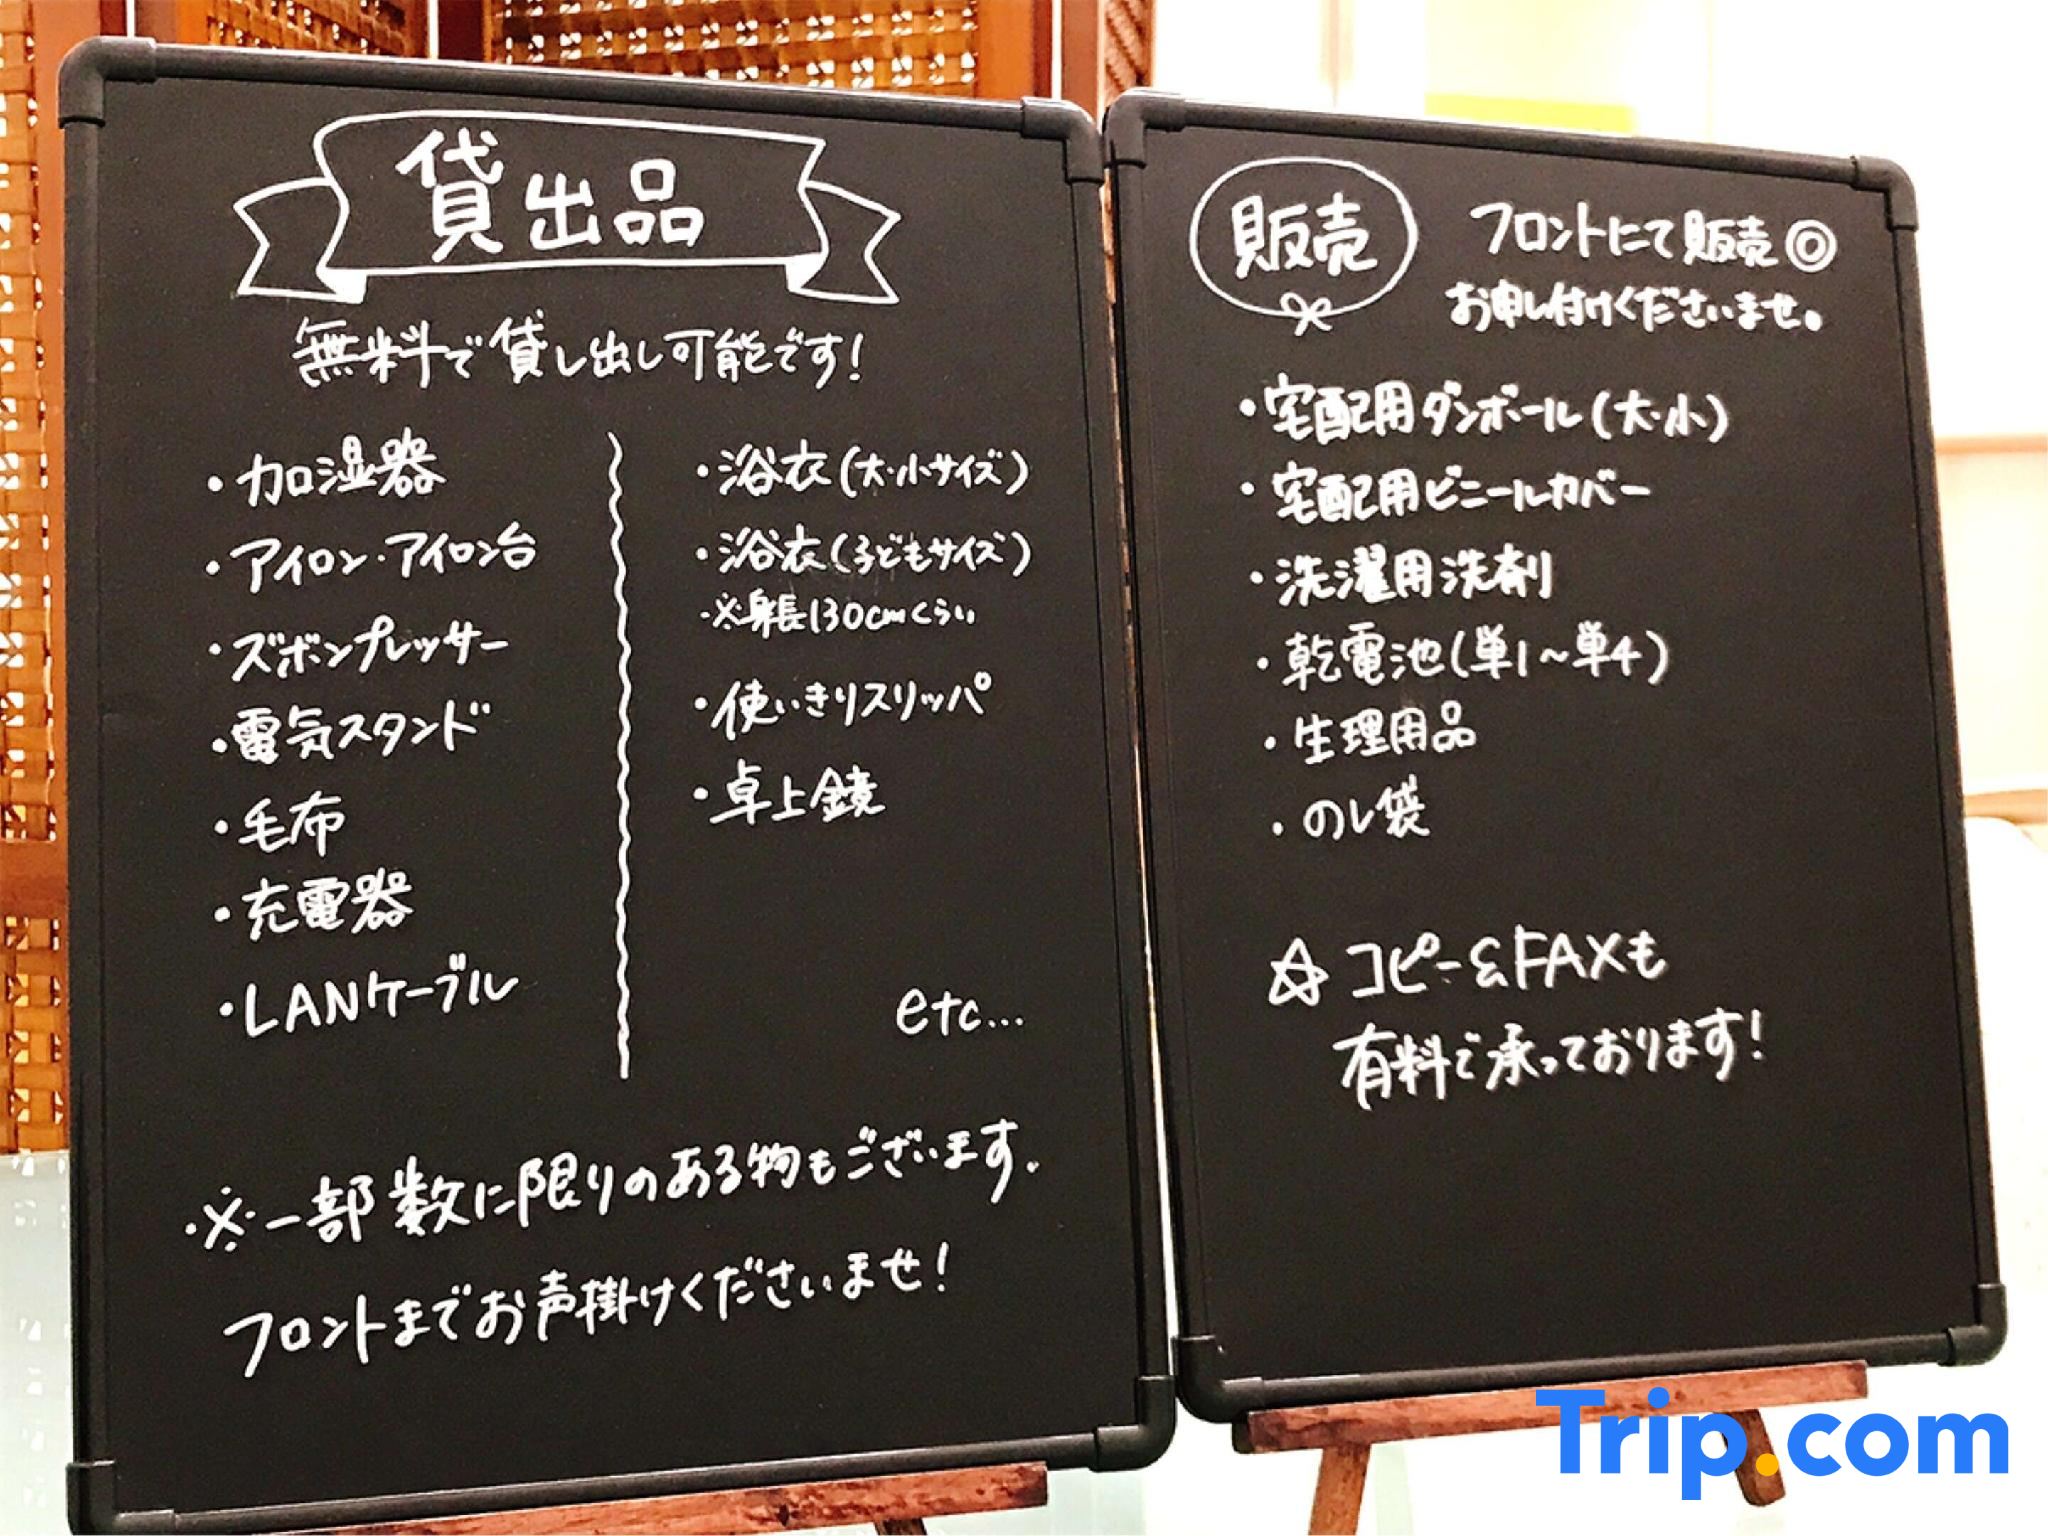 貸出品
無料で貸し出し可能です!
・加湿器
・アイロン・アイロン台
・ズボンプレッサー
・電気スタンド
・毛布
・充電器
・LANケーブル
・浴衣(大・小サイズ)
・浴衣(子どもサイズ)
※身長130cmくらい
・使いきりスリッパ
・卓上鏡
etc...
※一部数に限りのある物もございます。
フロントまでお声掛けくださいませ!
販売
フロントにて販売◎
お申し付けくださいませ。
・宅配用ダンボール(大・小)
・宅配用ビニールカバー
・洗濯用洗剤
・乾電池(単1~単4)
・生理用品
・のし袋
☆コピー&FAXも
有料で承っております!
Trip.com